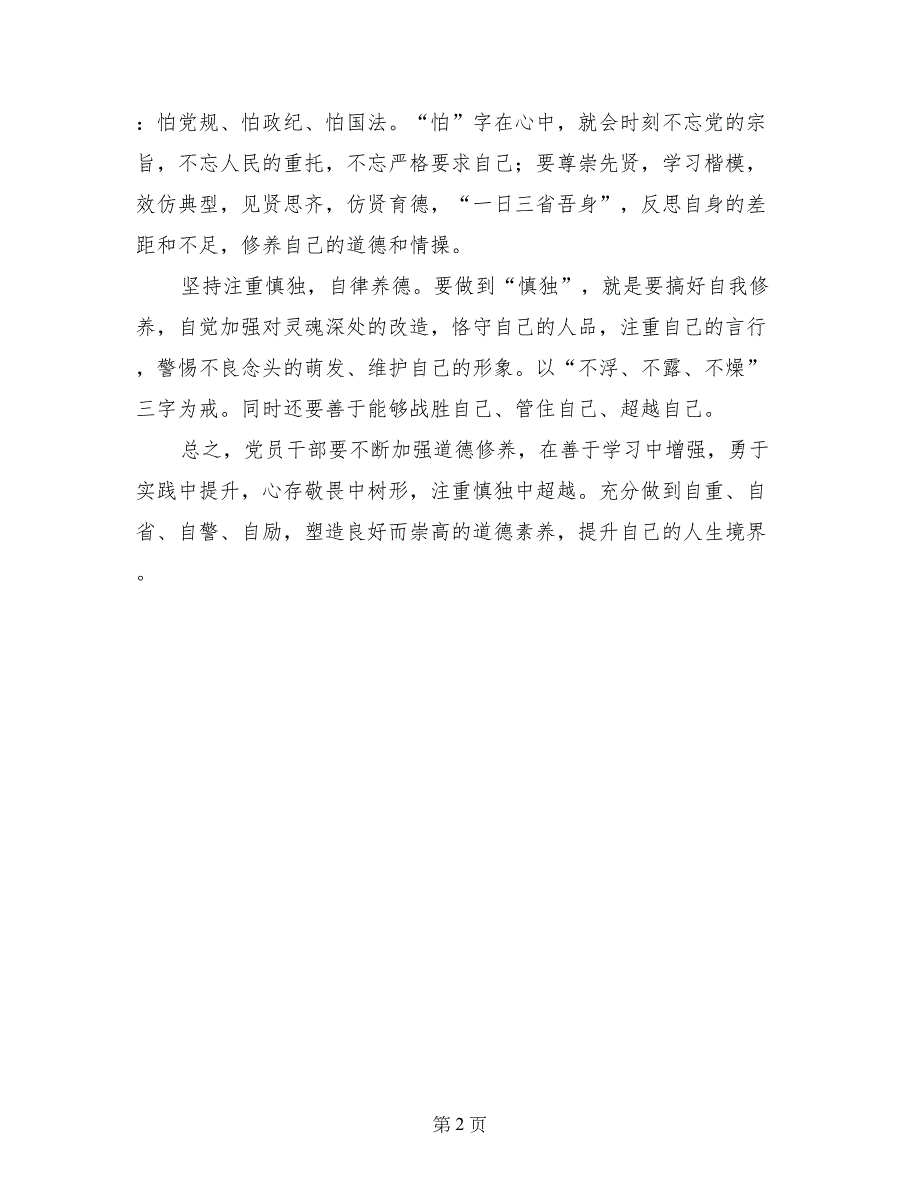 ：怕党规、怕政纪、怕国法。“怕”字在心中，就会时刻不忘党的宗
旨，不忘人民的重托，不忘严格要求自己；要尊崇先贤，学习楷模，
效仿典型，见贤思齐，仿贤育德，“一日三省吾身”，反思自身的差
距和不足，修养自己的道德和情操。
坚持注重慎独，自律养德。要做到“慎独”，就是要搞好自我修
养，自觉加强对灵魂深处的改造，恪守自己的人品，注重自己的言行
，警惕不良念头的萌发、维护自己的形象。以“不浮、不露、不燥”
三字为戒。同时还要善于能够战胜自己、管住自己、超越自己。
总之，党员干部要不断加强道德修养，在善于学习中增强，勇于
实践中提升，心存敬畏中树形，注重慎独中超越。充分做到自重、自
省、自警、自励，塑造良好而崇高的道德素养，提升自己的人生境界
。
第 2 页